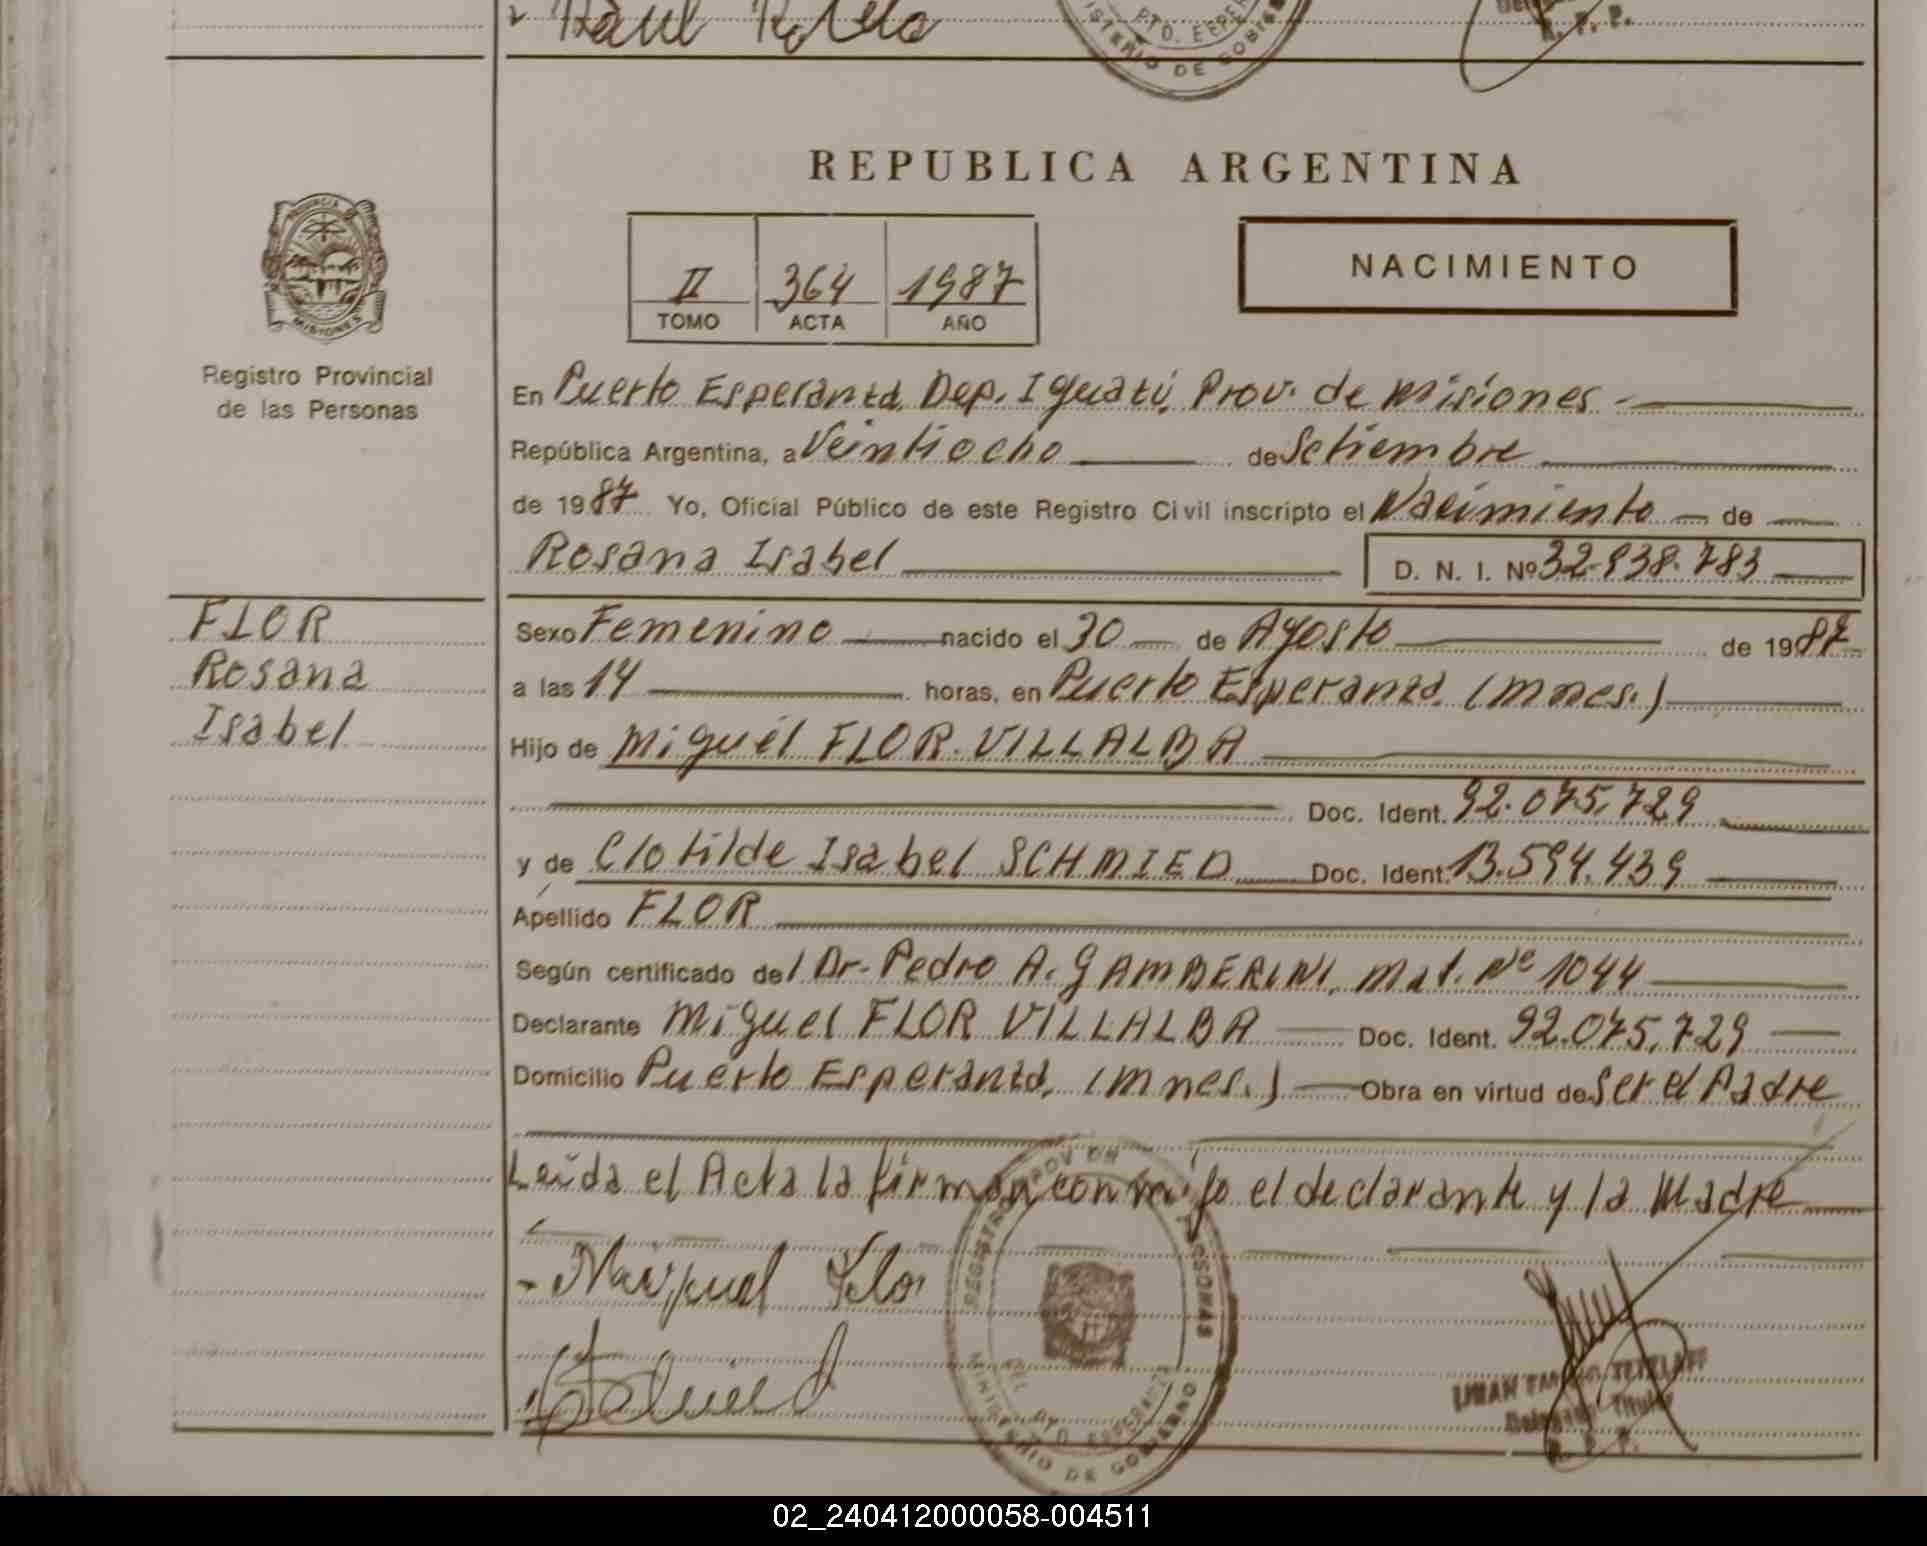 Raul
PTO. ESPER
MINISTERIO DE GOBIER
R. P. P.
REPUBLICA ARGENTINA
PROVINCIA D
MISIONES
Registro Provincial
de las Personas
II 364 1987
TOMO ACTA AÑO
NACIMIENTO
En Puerto Esperanza, Dep. Iguazú, Prov. de Misiones
República Argentina, a Veintiocho de Setiembre
de 1987 Yo, Oficial Público de este Registro Civil inscripto el Nacimiento de
Rosana Isabel D. N. I. Nº 32.938.783
FLOR
Rosana
Isabel
Sexo Femenino nacido el 30 de Agosto de 1987
a las 14 horas, en Puerto Esperanza, (Mnes.)
Hijo de Miguel FLOR VILLALBA
Doc. Ident. 92.075.729
y de Clotilde Isabel SCHMIED Doc. Ident. 13.594.439
Apellido FLOR
Según certificado del Dr. Pedro A. GAMBERINI, Mat. Nº 1044
Declarante Miguel FLOR VILLALBA Doc. Ident. 92.075.729
Domicilio Puerto Esperanza, (Mnes.) Obra en virtud de Ser el Padre
Leída el Acta la firman conmigo el declarante y la Madre
Miguel Flor
REGISTRO PROV. DE PERSONAS
PTO. ESPERANZA
MINISTERIO DE GOBIERNO
TETZLAFF
Delegado Titular
R. P. P.
02_240412000058-004511